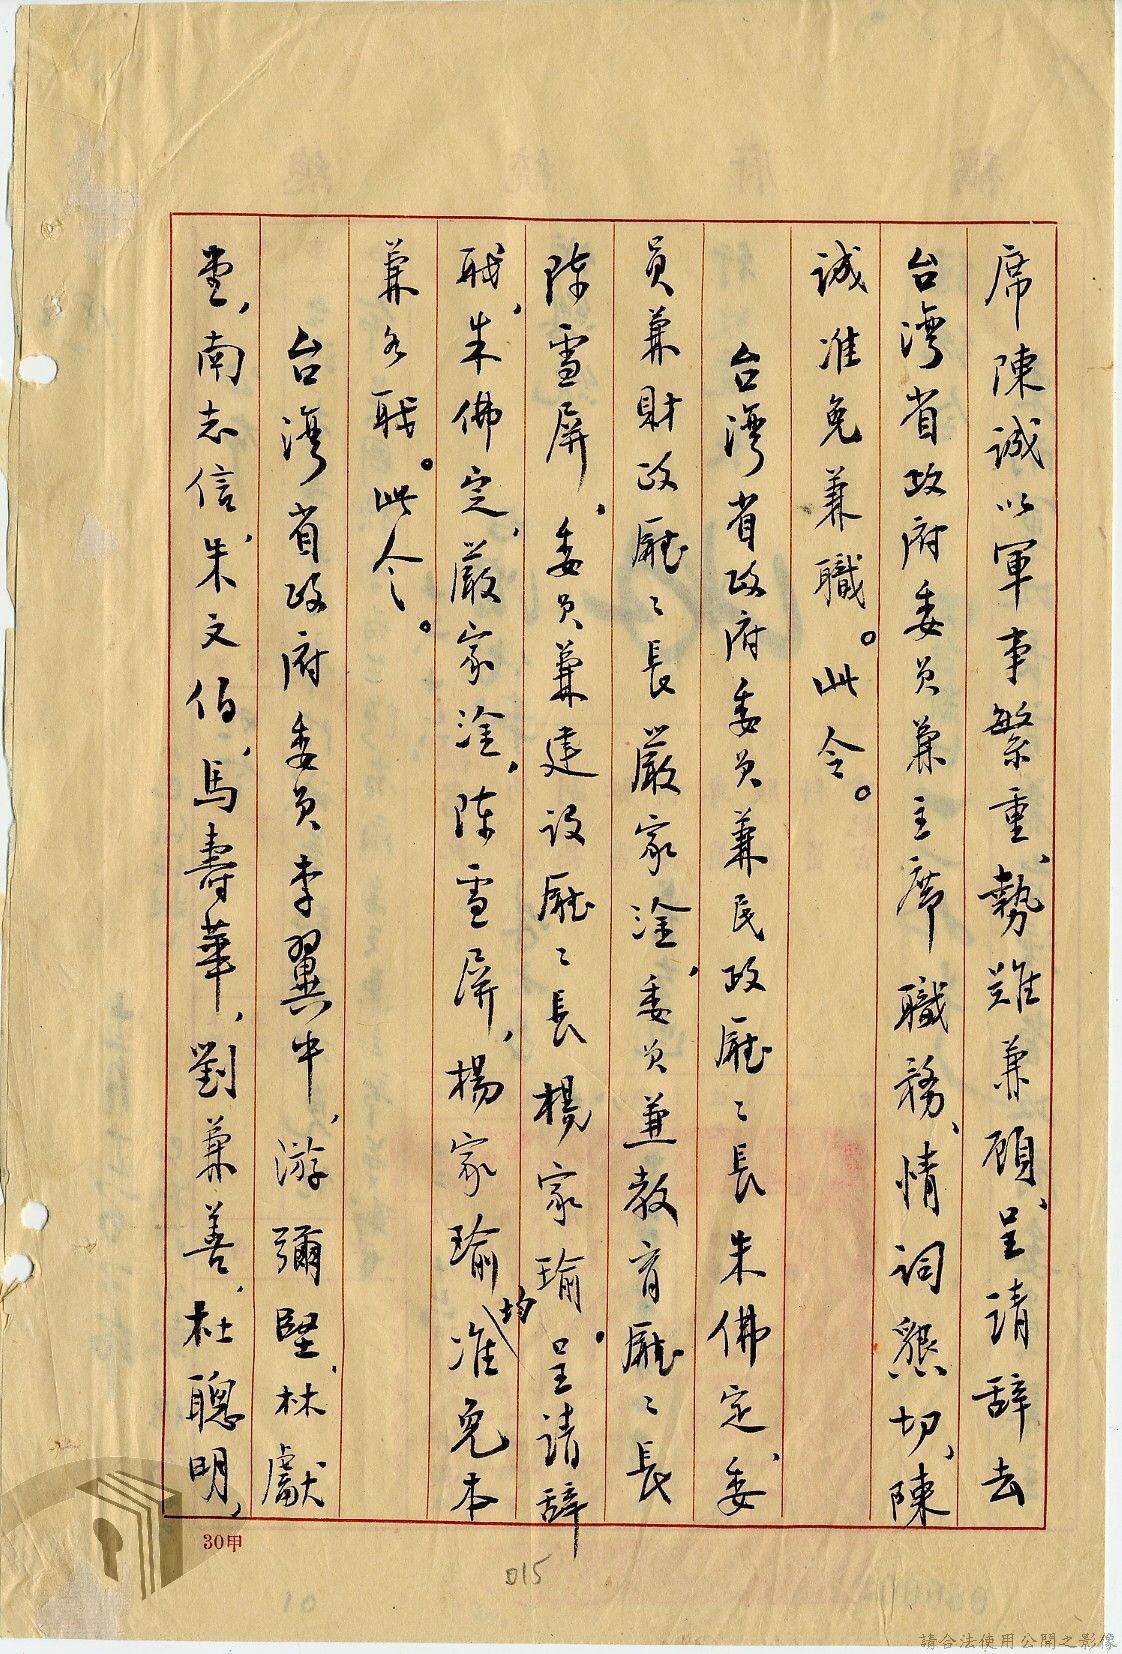 席陳誠以軍事繁重、勢難兼顧、呈請辞去
台灣省政府委員兼主席職務、情詞懇切、陳
誠准免兼職。此令。
台灣省政府委員兼民政廳〻長朱佛定、委
員兼財政廳〻長嚴家淦、委員兼教育廳〻長
陈雪屏、委員兼建設廳〻長楊家瑜、呈請辞
職、朱佛定、嚴家淦、陈雪屏、楊家瑜均准免本
兼各職。此令。
台灣省政府委員李翼中、游彌堅、林獻
堂、南志信、朱文伯、馬壽華、劉兼善、杜聰明、
30甲
015
請合法使用公開之影像